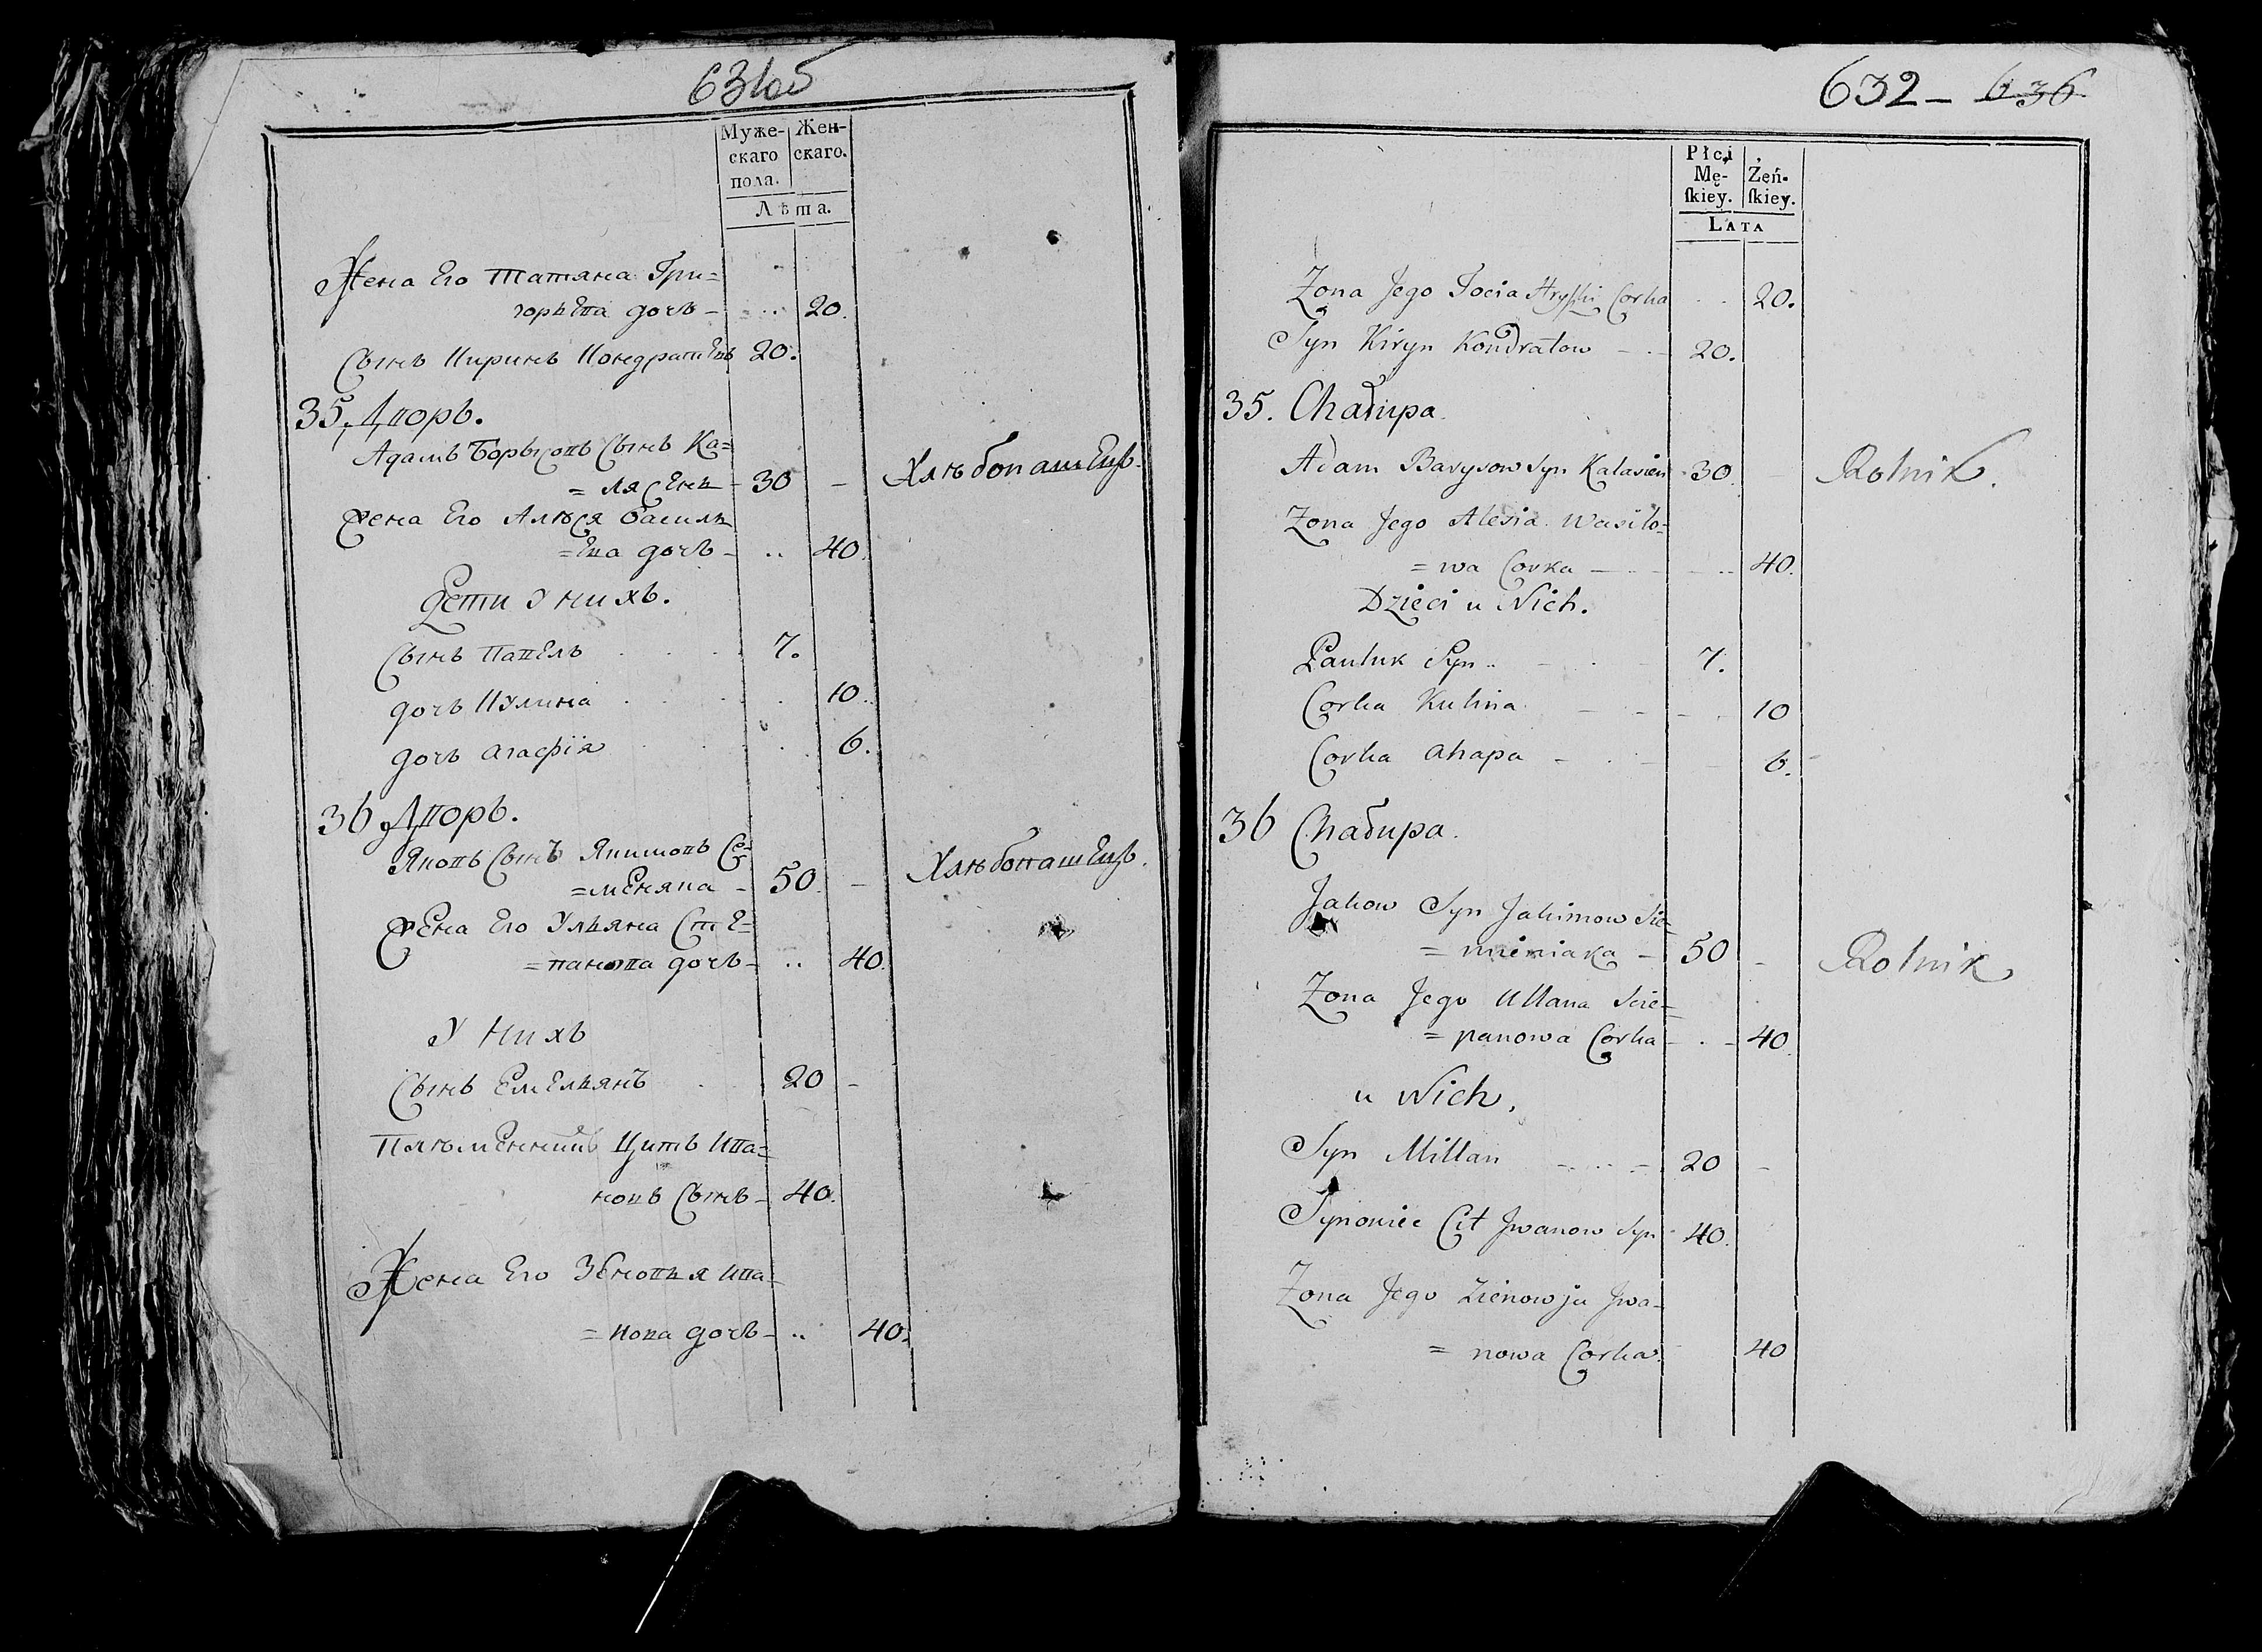 631об
Муже-
скаго
пола.
Жен-
скаго.
Лѣта.
Жена Его Татяна Гри=
горьева дочь 20.
Сынъ Киринъ Кондратевъ 20.
35. Дворъ.
Адамъ Борысовъ Сынъ Ка=
=лясень 30 Хлѣбопашецъ.
Жена Его Алѣся Василь
=ева дочь 40.
Дети у нихъ.
Сынъ Павелъ 7.
дочъ Кулина 10.
дочъ Агафія 6.
36 Дворъ.
Яковъ Сынъ Якимовъ Се=
=меняка 50. Хлѣбопашецъ.
Жена Его Ульяна Сте=
=панова дочь 40.
У нихъ
Сынъ Емельянъ 20
Племенникъ Цитъ Ива=
новъ Сынъ 40.
Жена Его Зеновья Ива=
=нова дочь 40.
632 – 636
Płci
Mę-
ſkiey.
Żeń-
ſkiey.
LATA
Zona Jego Tocia Hryſzki Corka 20.
Syn Kiryn Kondratow 20.
35. Chałupa.
Adam Barysow Syn Kalasień 30. Rolnik.
Zona Jego Alesia Wasilo=
=wa Corka 40.
Dzieci u Nich.
Pauluk Syn 7.
Corka Kulina 10
Corka Ahapa 6.
36 Chałupa.
Jakow Syn Jakimow Sie=
=mieniaka 50 Rolnik
Zona Jego Ullana Scie=
=panowa Corka 40.
u Nich.
Syn Millan 20
Synowiec Cit Jwanow Syn 40.
Zona Jego Zienowja Jwa=
=nowa Corka 40